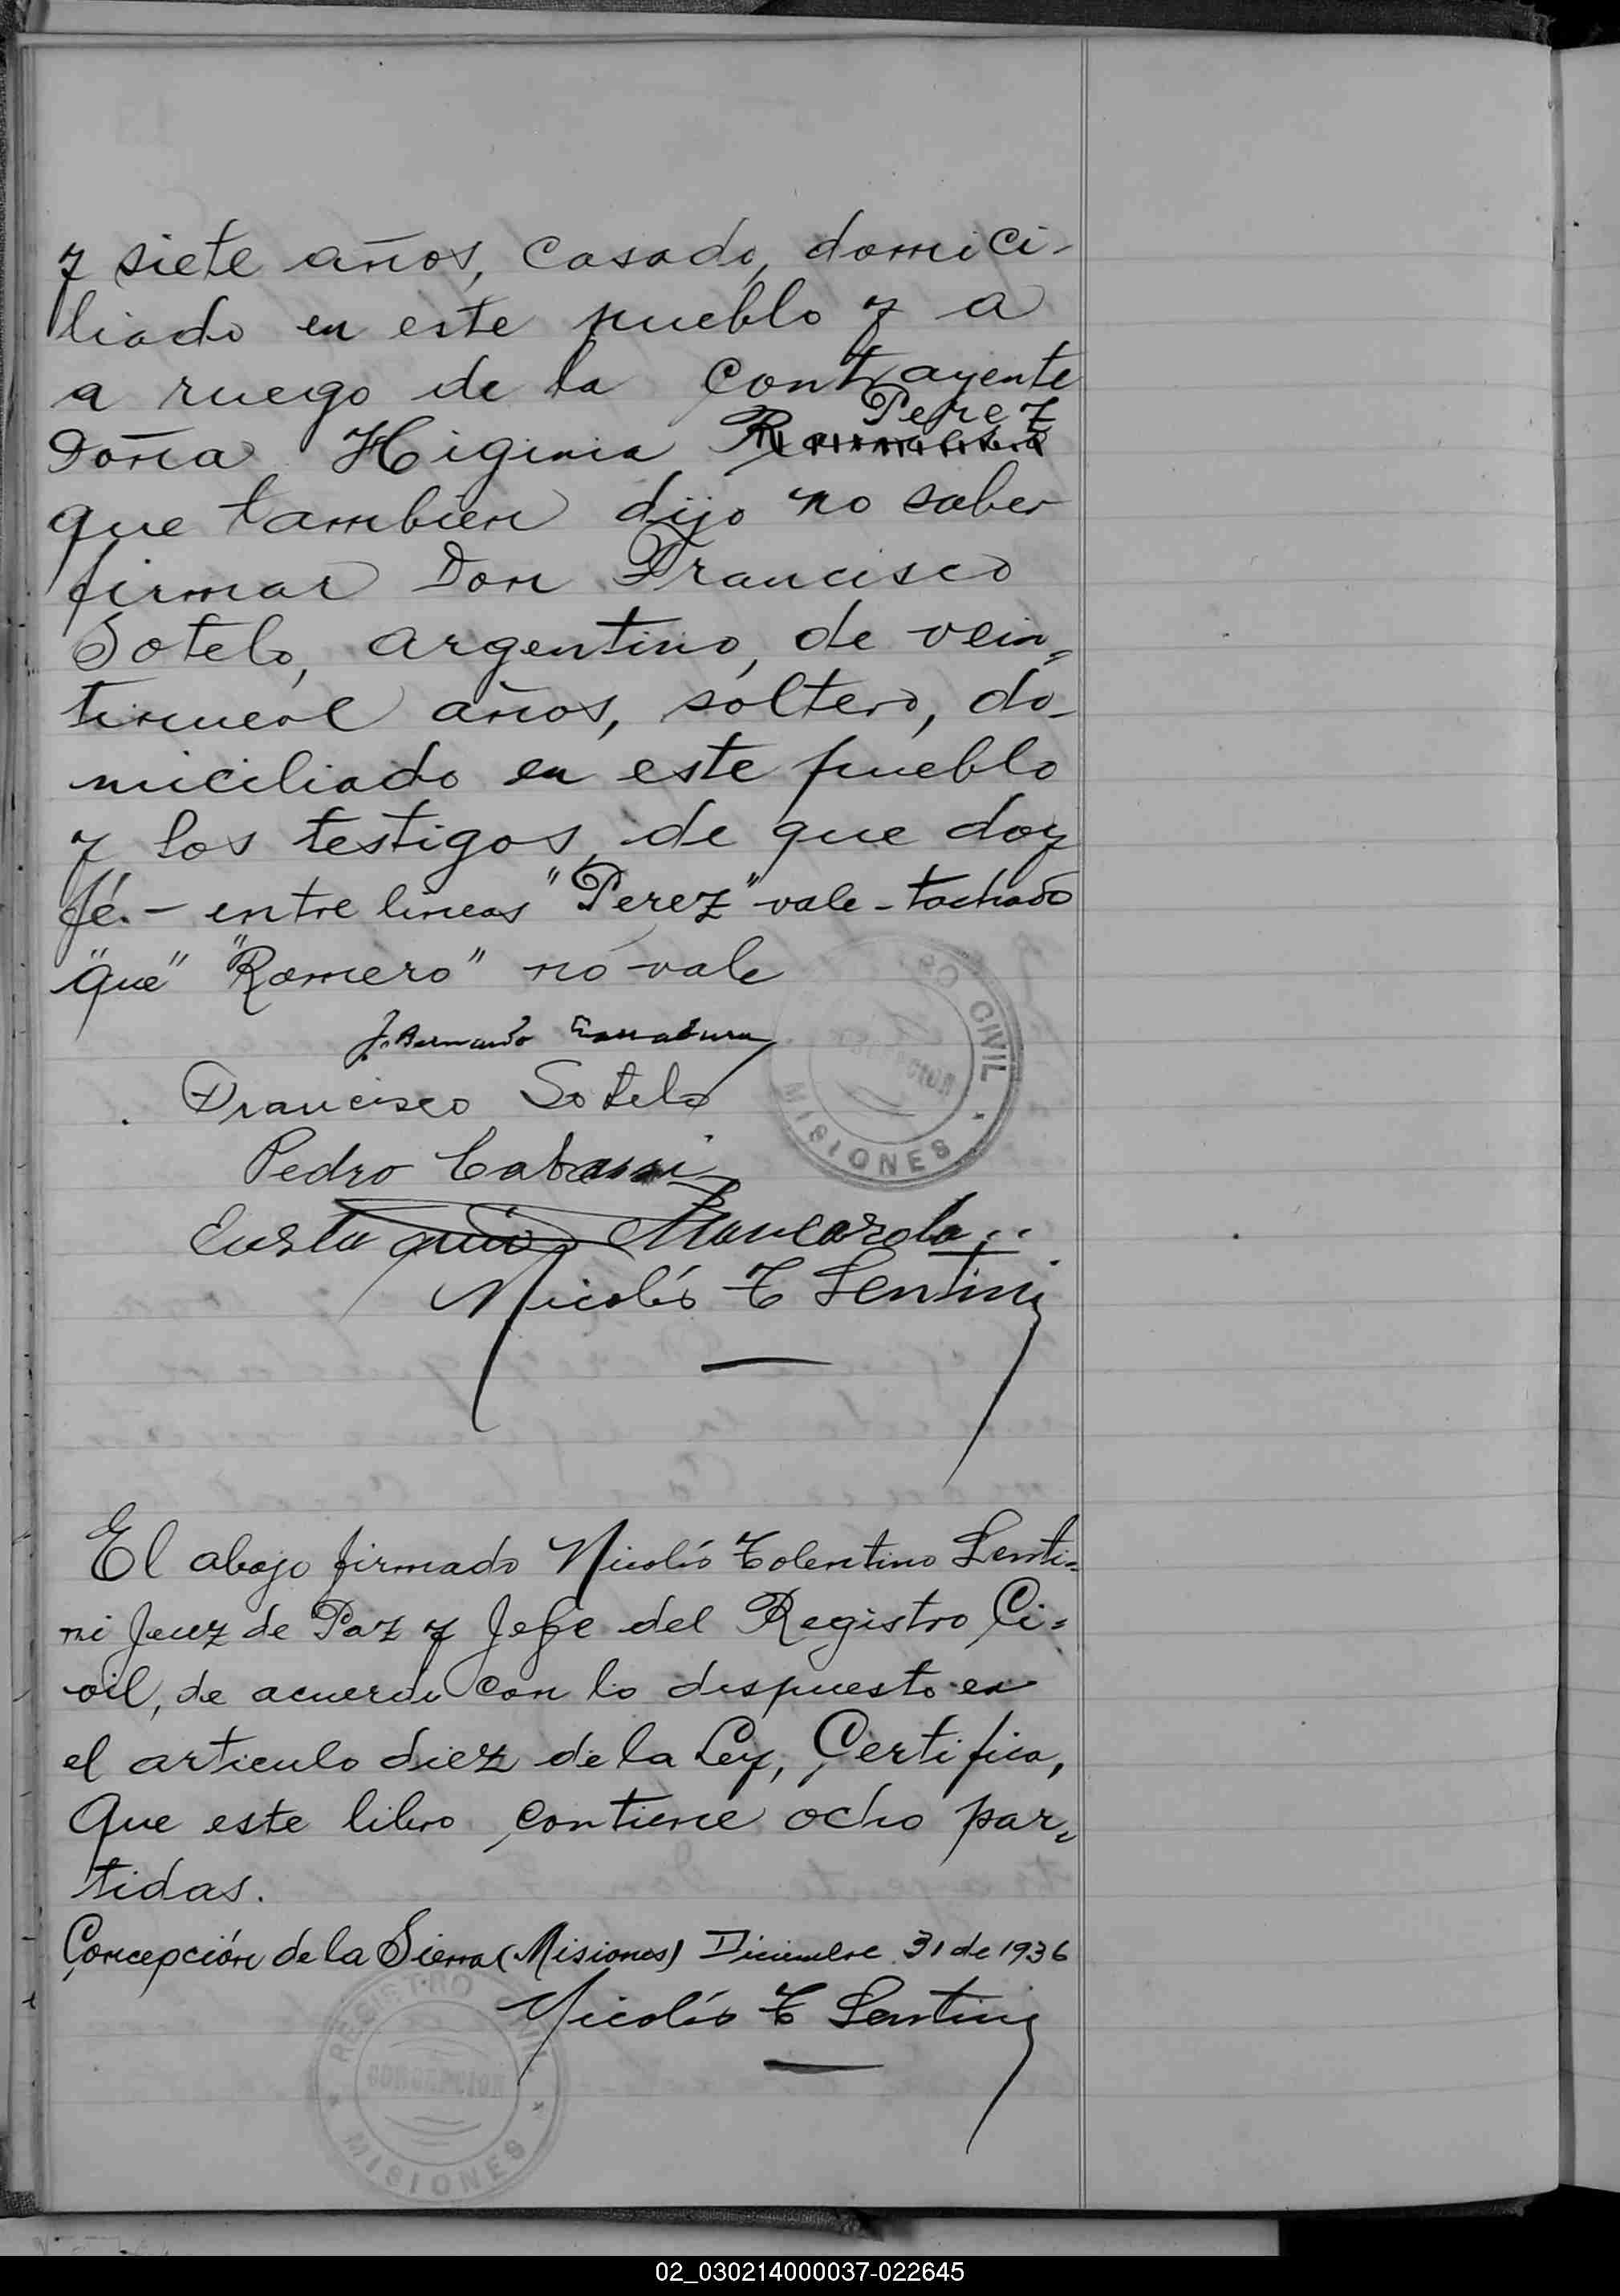 y siete años, casado, domici-
liado en este pueblo y a
a ruego de la contrayente
Perez
Doña Higinia Romero
que tambien dijo no saber
firmar Don Francisco
Sotelo, argentino, de vein=
tinueve años, soltero, do-
miciliado en este pueblo
y los testigos de que doy
fé.- entre lineas "Perez" vale - tachado
"que" "Romero" no vale
J. Bernardo
Francisco Sotelo
Pedro
Eustaquio
Nicolás T Lentini
REGISTRO CIVIL
CONCEPCION
MISIONES
El abajo firmado Nicolás Tolentino Lenti=
ni Juez de Paz y Jefe del Registro Ci=
vil, de acuerdo con lo dispuesto en
el articulo diez de la Ley, Certifica,
Que este libro contiene ocho par=
tidas.
Concepción de la Sierra (Misiones) Diciembre 31 de 1936
Nicolás T Lentini
REGISTRO CIVIL
CONCEPCION
MISIONES
02_030214000037-022645